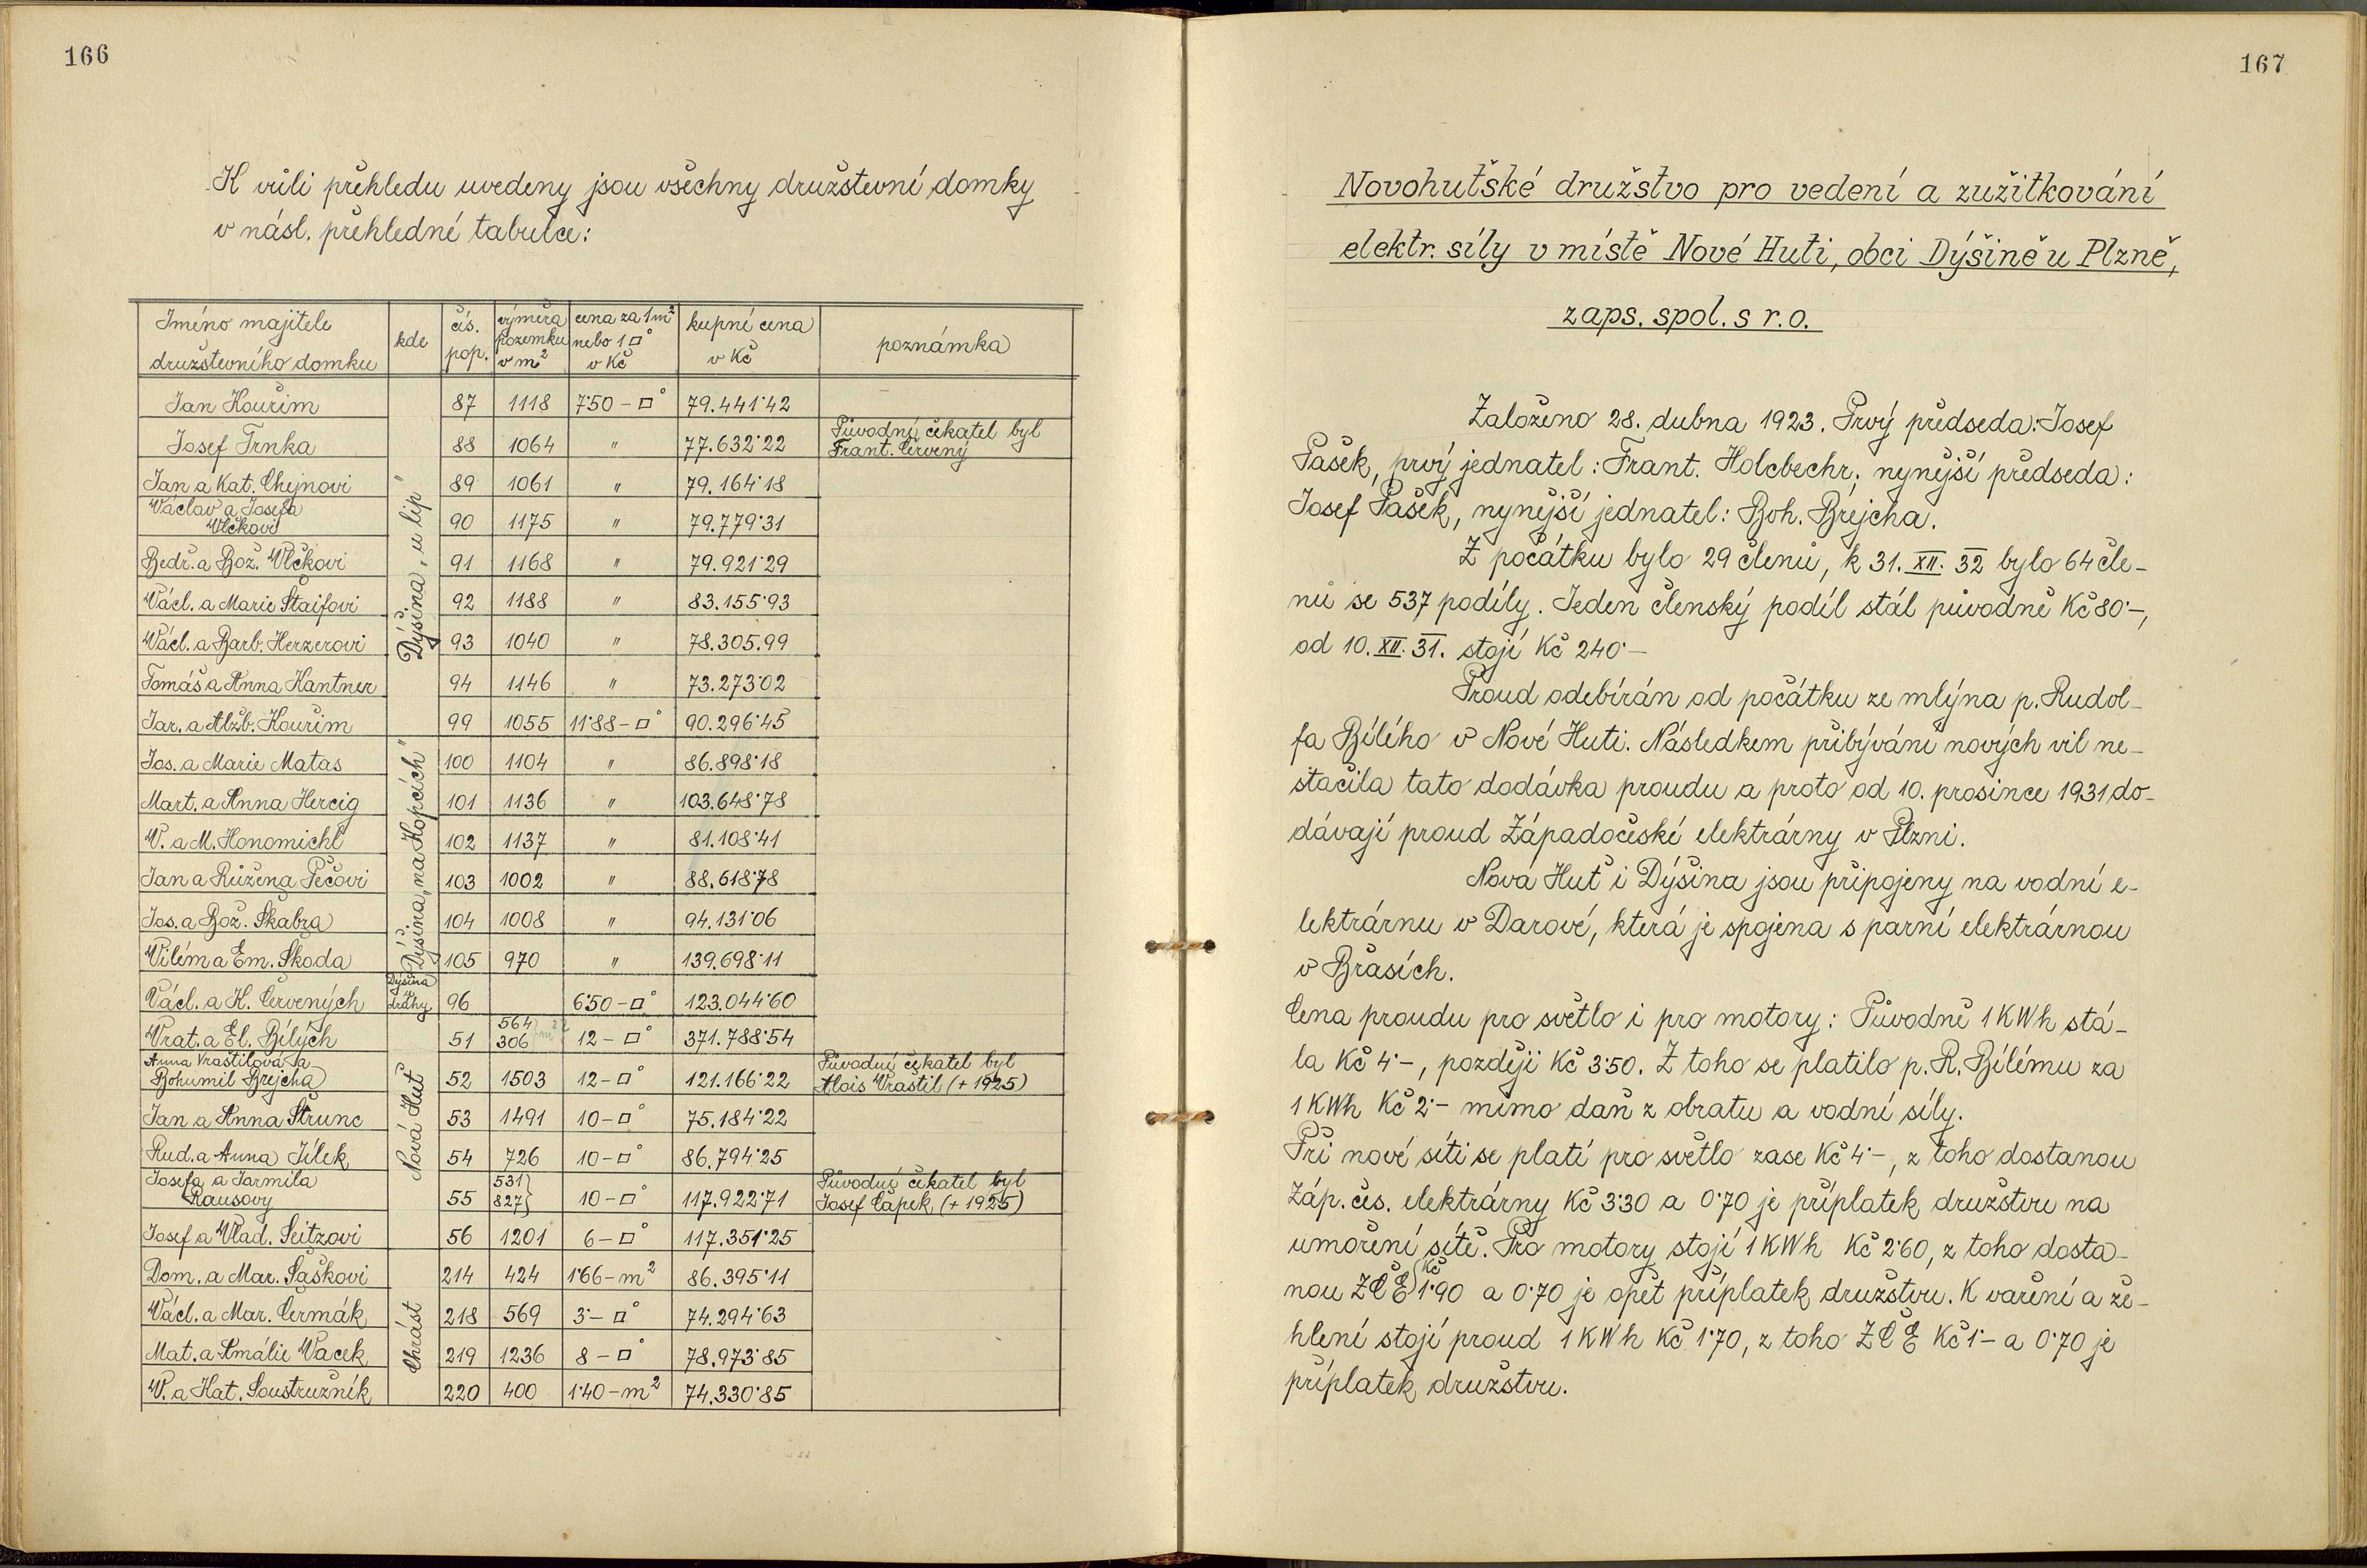 166
K vůli přehledu uvedeny jsou všechny družstevní domky
v násl. přehledné tabulce:
Jméno majitele družstevního domku | kde | čís. pop. | výměra pozemku v m² | cena za 1 m² nebo 1 □° v Kč | kupní cena v Kč | poznámka
Dýšina „u lip"
Jan Kouřim 87 1118 7·50 – □° 79.441·42
Josef Trnka 88 1064 " 77.632·22 Původní čekatel byl Frant. Červený
Jan a Kat. Chejnovi 89 1061 " 79.164·18
Václav a Josefa Vlčkovi 90 1175 " 79.779·31
Bedř. a Bož. Vlčkovi 91 1168 " 79.921·29
Václ. a Marie Štaifovi 92 1188 " 83.155·93
Václ. a Barb. Herzerovi 93 1040 " 78.305.99
Tomáš a Anna Kantner 94 1146 " 73.273·02
Jar. a Alžb. Kouřim 99 1055 11·88 – □° 90.296·45
Dýšina „na Kopcích"
Jos. a Marie Matas 100 1104 " 86.898·18
Mart. a Anna Hercig 101 1136 " 103.648·78
V. a M. Honomichl 102 1137 " 81.108·41
Jan a Růžena Pečovi 103 1002 " 88.618·78
Jos. a Bož. Škabra 104 1008 " 94.131·06
Vilém a Em. Škoda 105 970 " 139.698·11
Dýšina u dráhy
Václ. a K. Červených 96 6·50 – □° 123.044·60
Nová Huť
Vrat. a El. Bílých 51 564 306 } m² 12 – □° 371.788·54
Anna Vraštilová a Bohumil Brejcha 52 1503 12 – □° 121.166·22 Původní čekatel byl Alois Vraštil (+ 1925)
Jan a Anna Štrunc 53 1491 10 – □° 75.184·22
Rud. a Anna Jílek 54 726 10 – □° 86.794·25
Josefa a Jarmila Rausovy 55 531 827 } 10 – □° 117.922·71 Původní čekatel byl Josef Čapek (+ 1925)
Josef a Vlad. Seitzovi 56 1201 6 – □° 117.351·25
Chrást
Dom. a Mar. Šaškovi 214 424 1·66 – m² 86.395·11
Václ. a Mar. Čermák 218 569 3·– □° 74.294·63
Mat. a Amálie Vacek 219 1236 8 – □° 78.973·85
V. a Kat. Soustružník 220 400 1·40 – m² 74.330·85
167
Novohuťské družstvo pro vedení a zužitkování
elektr. síly v místě Nové Huti, obci Dýšině u Plzně,
zaps. spol. s r. o.
Založeno 28. dubna 1923. Prvý předseda: Josef
Pašek, prvý jednatel: Frant. Holcbechr; nynější předseda:
Josef Pašek, nynější jednatel: Boh. Brejcha.
Z počátku bylo 29 členů, k 31. XII. 32 bylo 64 čle-
nů se 537 podíly. Jeden členský podíl stál původně Kč 80·–,
od 10. XII. 31. stojí Kč 240·–
Proud odebírán od počátku ze mlýna p. Rudol-
fa Bílého v Nové Huti. Následkem přibývání nových vil ne-
stačila tato dodávka proudu a proto od 10. prosince 1931 do-
dávají proud Západočeské elektrárny v Plzni.
Nová Huť i Dýšina jsou připojeny na vodní e-
lektrárnu v Darové, která je spojena s parní elektrárnou
v Břasích.
Cena proudu pro světlo i pro motory: Původně 1 KWh stá-
la Kč 4·–, později Kč 3·50. Z toho se platilo p. R. Bílému za
1 KWh Kč 2·– mimo daň z obratu a vodní síly.
Při nové síti se platí pro světlo zase Kč 4·–, z toho dostanou
Záp. čes. elektrárny Kč 3·30 a 0·70 je příplatek družstvu na
umoření sítě. Pro motory stojí 1 KWh Kč 2·60, z toho dosta-
nou ZČE Kč 1·90 a 0·70 je opět příplatek družstvu. K vaření a že-
hlení stojí proud 1 KWh Kč 1·70, z toho ZČE Kč 1·– a 0·70 je
příplatek družstvu.